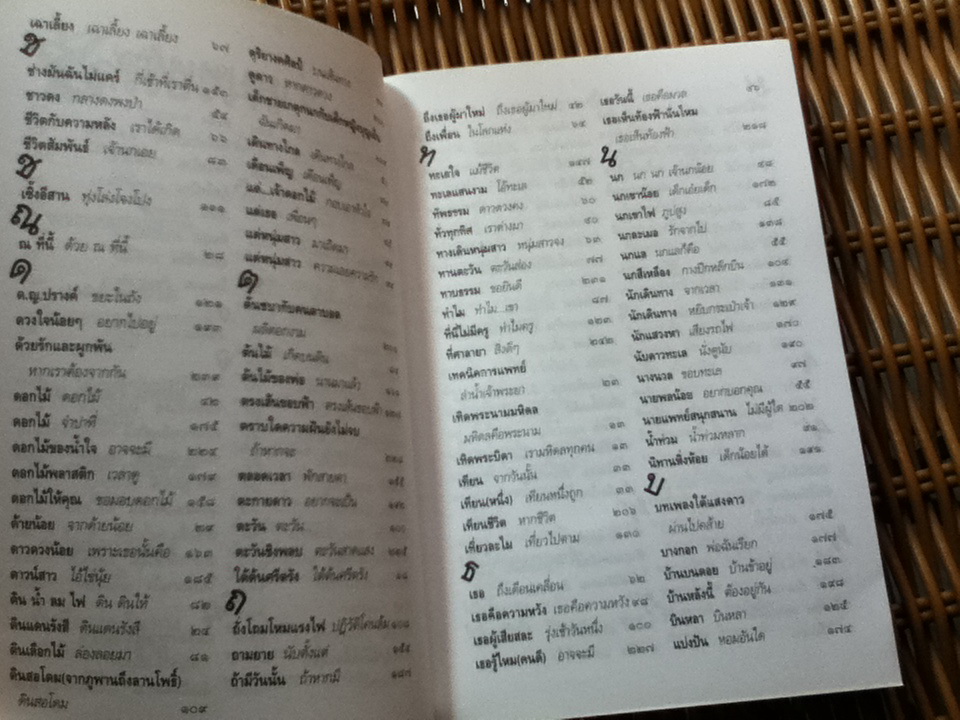 เฉาเลี้ยง เฉาเลี้ยง เฉาเลี้ยง ๖๗
ช
ช่างมันฉันไม่แคร์ กี่เช้าที่เราตื่น ๑๕๓
ชาวดง กลางดงพงป่า ๕๔
ชีวิตกับความหลัง เราได้เกิด ๖๖
ชีวิตสัมพันธ์ เจ้านกเอย ๘๓
ซ
เซิ้งอีสาน ทุ่งโล่งโจงโปง ๑๑๑
ณ
ณ ที่นี้ ด้วย ณ ที่นี้ ๒๘
ด
ด.ญ.ปรางค์ ขยะในถัง ๑๒๑
ดวงใจน้อยๆ อยากไปอยู่ ๑๙๓
ด้วยรักและผูกพัน
หากเราต้องจากกัน ๒๓๙
ดอกไม้ ดอกไม้ ๔๒
ดอกไม้ จำปาที่ ๑๗๕
ดอกไม้ของน้ำใจ อาจจะมี ๒๒๔
ดอกไม้พลาสติก เวลาดู ๑๗๙
ดอกไม้ให้คุณ ขอมอบดอกไม้ ๑๕๘
ด้ายน้อย จากด้ายน้อย ๒๙
ดาวดวงน้อย เพราะเธอนั้นคือ ๑๖๓
ดาวน์สาว โอ้ไข่นุ้ย ๑๘๕
ดิน น้ำ ลม ไฟ ดิน ดินให้ ๘๒
ดินแดนรังสี ดินแดนรังสี ๒๔
ดินเลือกไม้ ล่องลอยมา ๔๑
ดินสอโดม(จากภูพานถึงลานโพธิ์)
ดินสอโดม ๑๐๙
ดุริยางคศิลป์
ดูดาว หากดาวดวง
เดินทางไกล เดินทางไกล
เดือนเพ็ญ เดือนเพ็ญ
แด่...เจ้าดอกไม้
แด่เธอ เพื่อนๆ
แด่หนุ่มสาว
แด่หนุ่มสาว ความและความรัก
ต
ต้นชบากับคนตาบอด
ผลิดอกงาม
ต้นไม้ เกิดบนดิน
ต้นไม้ของพ่อ นานมาแล้ว
ตรงเส้นขอบฟ้า ตรงเส้นขอบฟ้า
ตราบใดความฝันยังไม่จบ
ถ้าหากจะ
ตลอดเวลา พักสายตา
ตะกายดาว อยากจะเป็น
ตะวัน ตะวัน... ๑๐๐
ตะวันชิงพลบ ตะวันสาดแสง
ใต้ต้นศรีตรัง ใต้ต้นศรีตรัง
ถ
ถั่งโถมโหมแรงไฟ ปฏิวัติโค่นล้ม
ถามยาย นับตั้งแต่
ถ้ามีวันนั้น ถ้าหากมี ๑๘๗
ถึงเธอผู้มาใหม่ ถึงเธอผู้มาใหม่ ๔๒
ถึงเพื่อน ในโลกแห่ง ๖๔
ท
ทะเลใจ แม้ชีวิต ๑๔๗
ทะเลแสนงาม โอ้ทะเล ๕๒
ทัพธรรม ดาวดวงคง ๖๐
ทั่วทุกทิศ เราต่างมา ๙๐
ทางเดินหนุ่มสาว หนุ่มสาวจง ๖๓
ทานตะวัน ตะวันส่อง ๗๗
ทานธรรม ขอยินดี ๒๓๑
ทำไม ทำไม เรา ๘๗
ที่นี่ไม่มีครู ทำไมครู ๑๒๓
ที่ศาลายา สิ่งดีๆ ๒๔๒
เทคนิคการแพทย์
ลำน้ำเจ้าพระยา ๒๓
เทิดพระนามมหิดล
มหิดลคือพระนาม ๑๓
เทิดพระบิดา เรามหิดลทุกคน ๑๓
เทียน จากวันนั้น ๓๓
เทียน(หนึ่ง) เทียนหนึ่งถูก ๓๓
เทียนชีวิต หากชีวิต ๒๐๖
เที่ยวละไม เที่ยวไปตาม ๑๓๐
ธ
เธอ ถึงเดือนเคลื่อน ๖๒
เธอคือความหวัง เธอคือความหวัง ๙๘
เธอผู้เสียสละ รุ่งเช้าวันหนึ่ง ๑๐๐
เธอรู้ไหม(คนดี) อาจจะมี ๒๒๗
เธอวันนี้ เธอคือมวล ๔๖
เธอเห็นท้องฟ้านั่นไหม
เธอเห็นท้องฟ้า ๒๑๘
น
นก นก นก เจ้านกน้อย ๔๘
นกเขาน้อย เด็กเอ๋ยเด็ก ๑๗๒
นกเขาไฟ ภูปสูง ๘๕
นกละเมอ รักจากไป ๑๓๘
นกแล นกแลก็คือ ๕๕
นกสีเหลือง กางปีกหลีกบิน ๑๐๔
นักเดินทาง จากเวลา ๑๓๑
นักเดินทาง หยิบกระเป๋าเจ้า ๑๒๙
นักแสวงหา เสียงรถไฟ ๑๗๐
นับดาวทะเล นั่งดูนับ ๑๙๐
นางนวล ขอบทะเล ๙๗
นายพลน้อย อยากบอกคุณ ๕๕
นายแพทย์สนุกสนาน ไม่มีผู้ใด ๒๐๒
น้ำท่วม น้ำท่วมหลาก ๙๑
นิทานหิ่งห้อย เด็กน้อยได้ ๑๔๑
บ
บทเพลงใต้แสงดาว
ผ่านไปคล้าย ๑๗๕
บางกอก พ่อฉันเรียก ๑๗๗
บ้านบนดอย บ้านข้าอยู่ ๑๘๓
บ้านหลังนี้ ต้องอยู่กัน ๑๙๘
บินหลา บินหลา ๑๒๕
แบ่งปัน หอมอันใด ๑๗๔